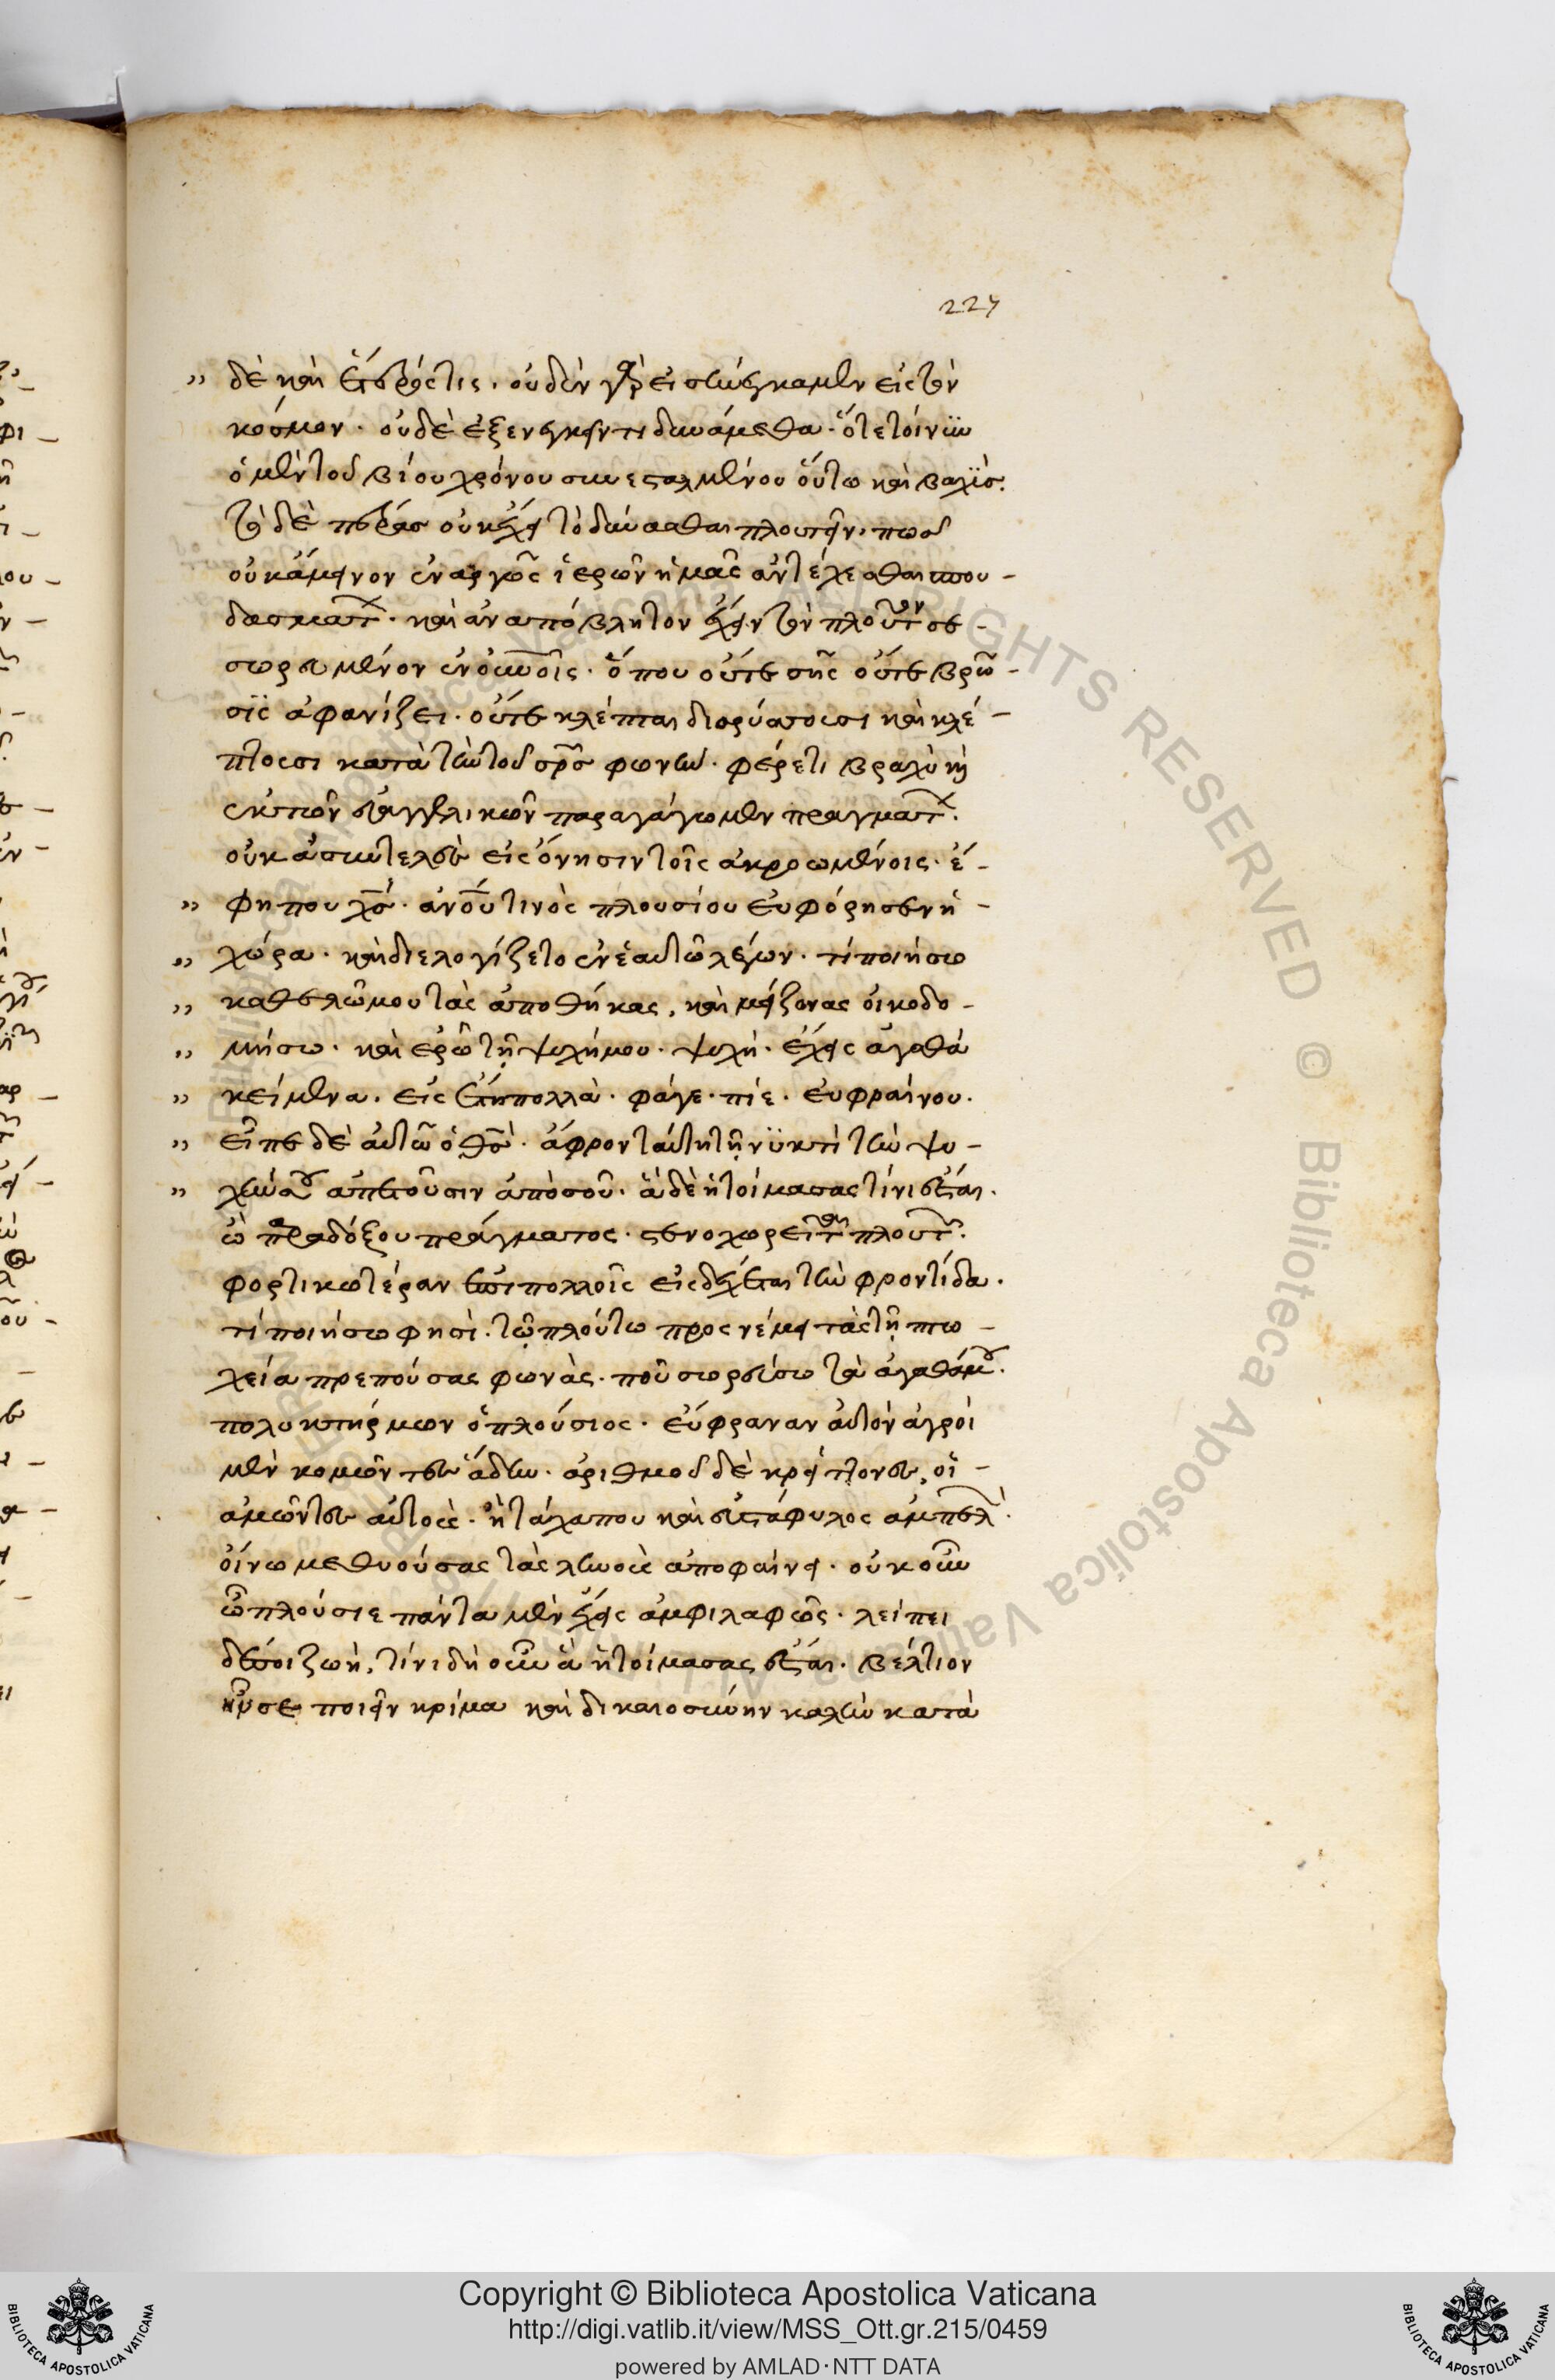 227
δὲ καὶ ἕτερός τις. οὐδὲν γὰρ εἰσηνέγκαμεν εἰς τὸν
κόσμον. οὐδὲ ἐξενεγκεῖν τι δυνάμεθα. ὅτε τοίνυν
ὁ μὲν τοῦ βίου χρόνου συνεσταλμένου οὕτω καὶ βαλιὸς.
τὸ δὲ πέρας οὐκ ἔχει τὸ δύνασθαι πλουτεῖν. πως
οὐκ ἄμεινον ἐναργῶς ἱερῶν ἡμᾶς ἀντέχεσθαι σπου-
δασμάτ. καὶ ἀναπόβλητον ἔχειν τὸν πλοῦτον σε-
σωρευμένον ἐν οὐνοῖς. ὅπου οὔτε σὴς οὔτε βρῶ-
σϊς ἀφανίζει. οὔτε κλέπται διορύττουσι καὶ κλέ-
πτουσι κατὰ τὴν τοῦ σρς φωνήν. φέρε τι βραχὺ καὶ
ἐκ τῶν εὐαγγελικῶν παραγάγωμεν πραγμάτ.
οὐκ ἀσυντελὲς εἰς ὄνησιν τοῖς ἀκροωμένοις. ἔ-
φη που χς. ἀνου τινὸς πλουσίου εὐφόρησεν ἡ
χώρα. καὶ διελογίζετο ἐν ἑαυτῷ λέγων. τί ποιήσω
καθελῶ μου τὰς ἀποθήκας, καὶ μείζονας οἰκοδο-
μήσω. καὶ ἐρῶ τῇ ψυχῇ μου. ψυχὴ. ἔχεις ἀγαθὰ
κείμενα. εἰς ἔτη πολλὰ. φάγε. πίε. εὐφραίνου.
εἶπε δὲ αὐτῶ ὁ θς. ἄφρον ταύτη τῇ νϋκτὶ τὴν ψυ-
χήν σου ἀπαιτοῦσιν ἀπὸ σοῦ. ἃ δὲ ἡτοίμασας τίνι ἔσται.
ὢ παραδόξου πράγματος. στενοχωρεῖται τ πλουτ.
φορτικωτέραν ἐπὶ πολλοῖς εἰσδέχεται τὴν φροντίδα.
τί ποιήσω φησὶ. τῷ πλούτω προσνέμει τὰς τῇ πτω-
χεία πρεπούσας φωνὰς. ποῦ σωρεύσω τὰ ἀγαθά μου.
πολυκτήμων ὁ πλούσιος. εὔφραναν αὐτὸν ἀγροὶ
μὲν κομῶντες ἄδην. ἀριθμοῦ δὲ κρείττονες, οἱ
ἀμῶντες αὐτοὺς. ἢ τάχα που καὶ εὐστάφυλος ἄμπελ.
οἴνω μεθυούσας τὰς ληνοὺς ἀποφαίνει. οὐκοῦν
ὦ πλούσιε πάντα μὲν ἔχεις ἀμφιλαφῶς. λείπει
δέ σοι ζωὴ, τίνι δὴ οὖν ἃ ἡτοίμασας ἔσται. βέλτιον
ἦν σε ποιεῖν κρίμα καὶ δικαιοσύνην καλὴν κατὰ
Copyright © Biblioteca Apostolica Vaticana
http://digi.vatlib.it/view/MSS_Ott.gr.215/0459
powered by AMLAD·NTT DATA
BIBLIOTECA APOSTOLICA VATICANA
BIBLIOTECA APOSTOLICA VATICANA